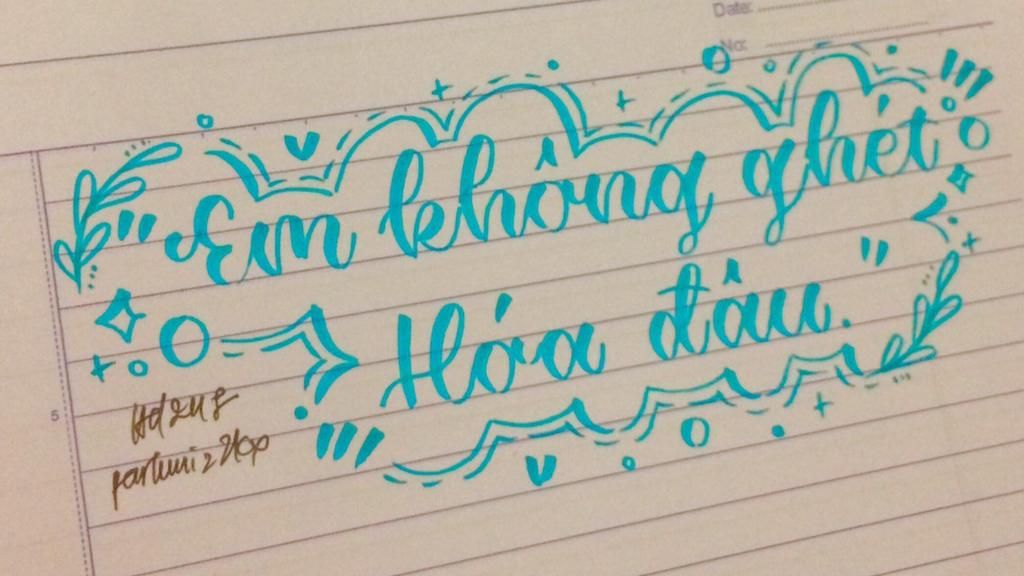 Date:
No:
"Em không ghét
Hóa đâu."
5